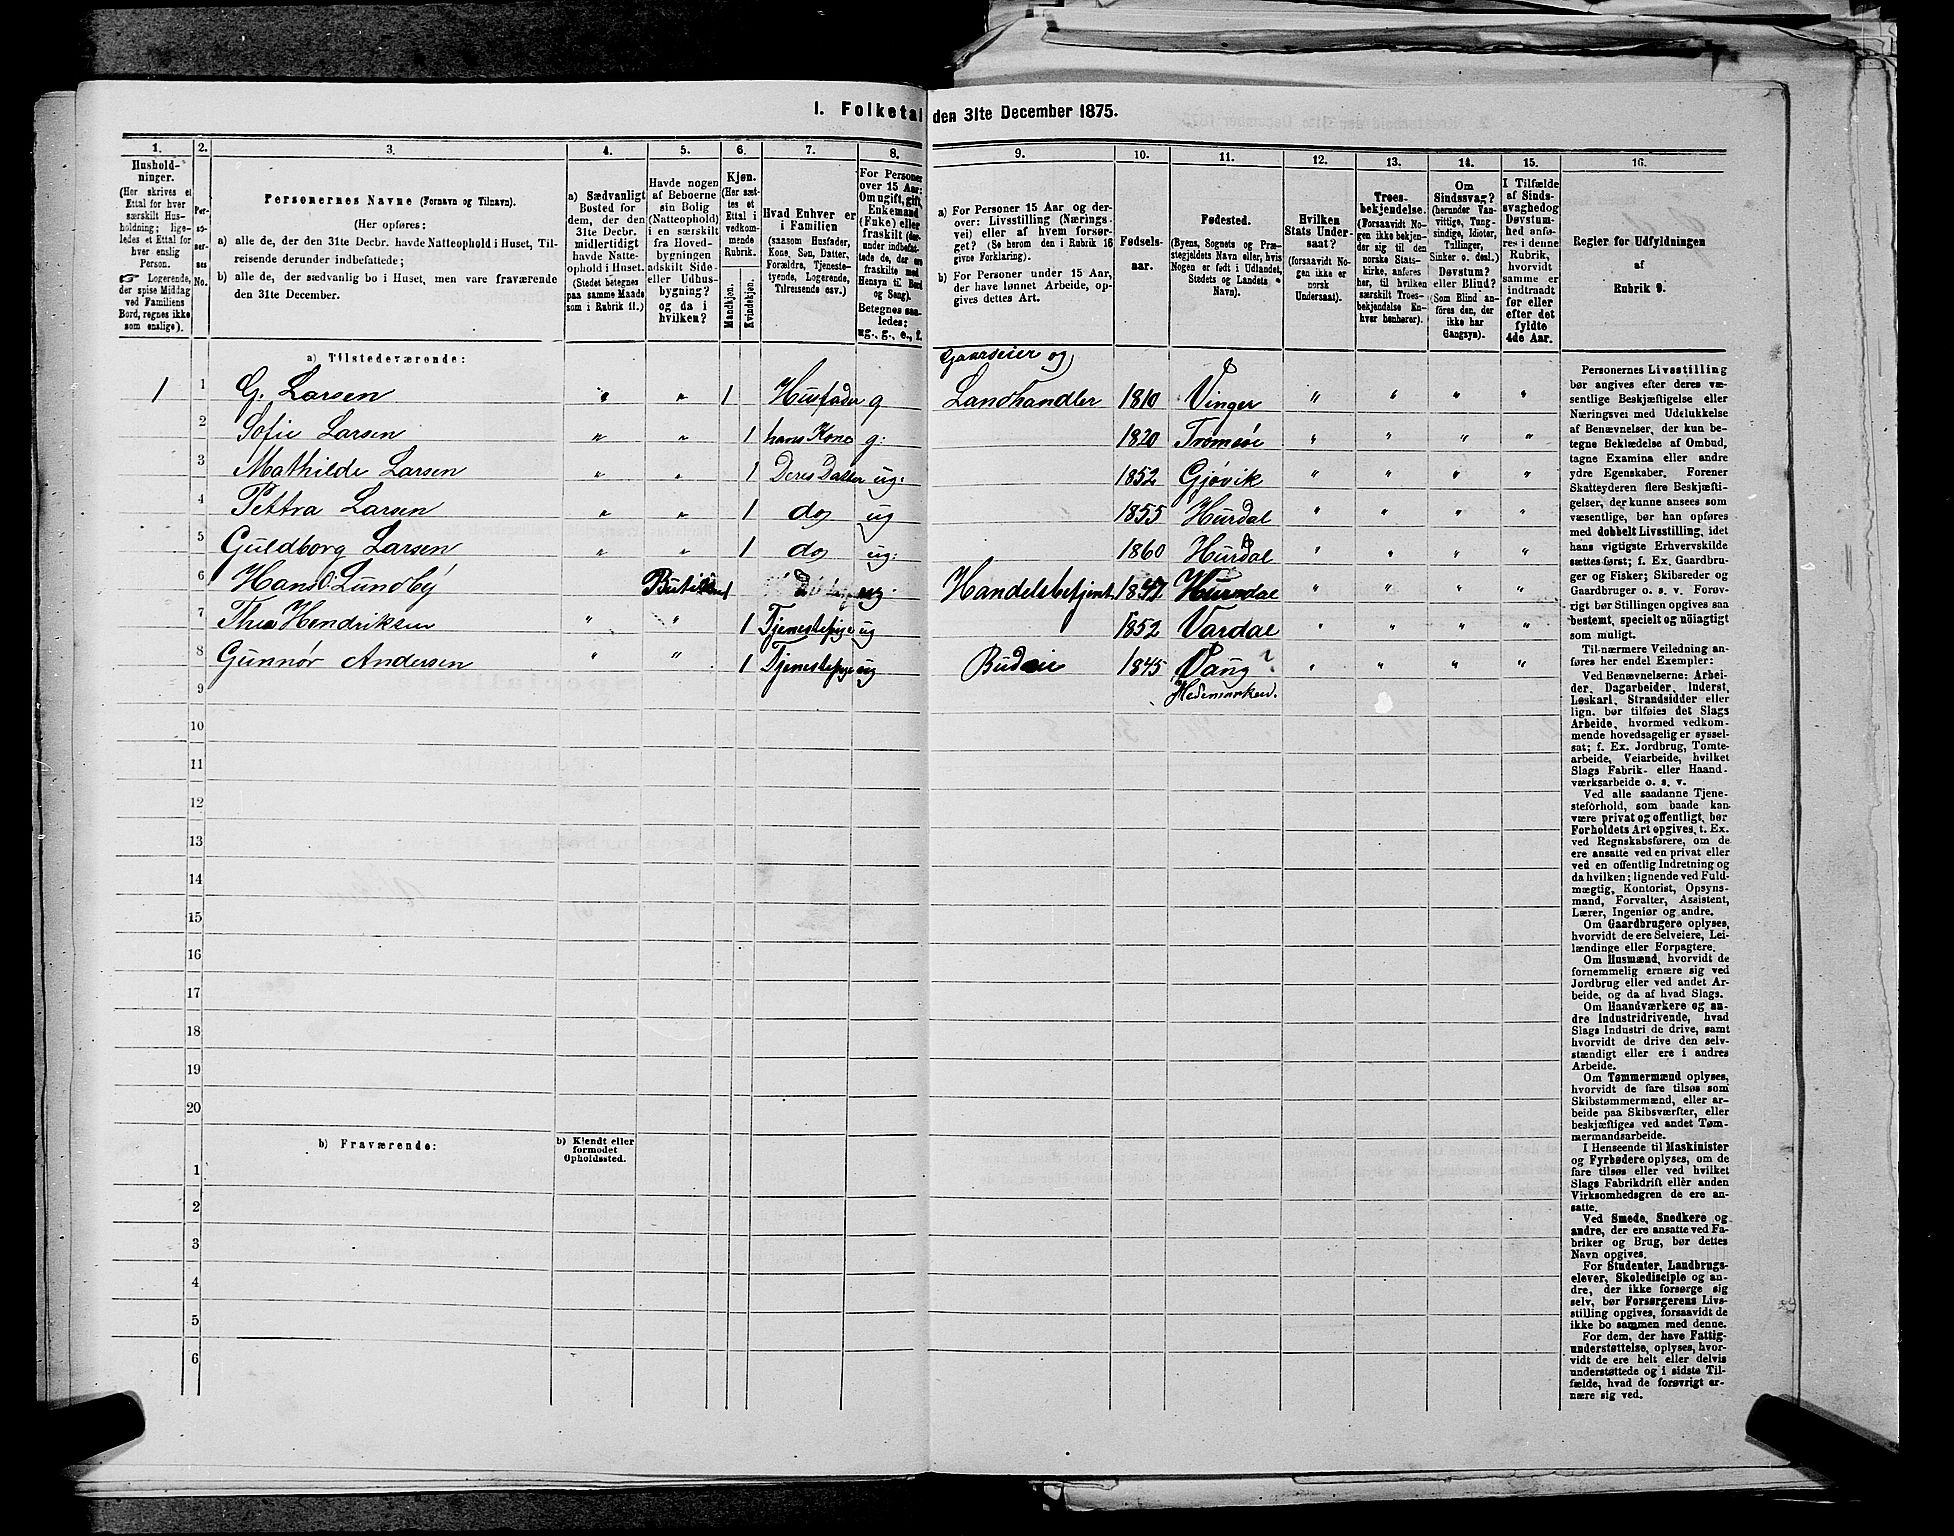 I. Folketal den 31te December 1875.
1. 2. 3. 4. 5. 6. 7. 8. 9. 10. 11. 12. 13. 14. 15. 16.
Hushold-
ninger.
(Her skrives et
Ettal for hver
særskilt Hus-
holdning; lige-
ledes et Ettal for
hver enslig
Person.
☞ Logerende,
der spise Middag
ved Familiens
Bord, regnes ikke
som enslige).
Per-
so-
ner-
nes
No.
Personernes Navne (Fornavn og Tilnavn).
(Her opføres:
a) alle de, der den 31te Decbr. havde Natteophold i Huset, Til-
reisende derunder indbefattede;
b) alle de, der sædvanlig bo i Huset, men vare fraværende
den 31te December.
a) Sædvanligt
Bosted for
dem, der den
31te Decbr.
midlertidigt
havde Natte-
ophold i Huset.
(Stedet betegnes
paa samme Maade
som i Rubrik 11.)
Havde nogen
af Beboerne
sin Bolig
(Natteophold)
i en særskilt
fra Hoved-
bygningen
adskilt Side-
eller Udhus-
bygning?
og da i
hvilken?
Kjøn.
(Her sæt-
tes et
Ettal i
vedkom-
mende
Rubrik.
Mandkjøn.
Kvindekjøn.
Hvad Enhver er
i Familien
(saasom Husfader,
Kone, Søn, Datter,
Forældre, Tjeneste-
tyende, Logerende,
Tilreisende osv.)
For Personer
over 15 Aar:
Om ugift, gift,
Enkemand
(Enke) eller
fraskilt (der-
under indbefat-
tede de, der ere
fraskilte med
Hensyn til Bord
og Seng).
Betegnes saa-
ledes:
ug., g., e., f.
a) For Personer 15 Aar og der-
over: Livsstilling (Nærings-
vei) eller af hvem forsør-
get? (Se herom den i Rubrik 16
givne Forklaring).
b) For Personer under 15 Aar,
der have lønnet Arbeide, op-
gives dettes Art.
Fødsels-
aar.
Fødested.
(Byens, Sognets og Præ-
stegjeldets Navn, eller, hvis
Nogen er født i Udlandet,
Stedets og Landets
Navn).
Hvilken
Stats Under-
saat?
(forsaavidt No-
gen ikke er
norsk
Undersaat).
Troes-
bekjendelse.
(Forsaavidt No-
gen ikke bekjen-
der sig til den
norske Stats-
kirke, anføres
her, til hvilken
særskilt Troes-
bekjendelse En-
hver henhører).
Om
Sindssvag?
(herunder Van-
vittige, Tung-
sindige, Idioter,
Tullinger,
Sinker o. desl.)
Døvstum?
eller Blind?
(Som Blind an-
føres den, der
ikke har
Gangsyn).
I Tilfælde
af Sinds-
svaghed og
Døvstum-
hed anfø-
res i denne
Rubrik,
hvorvidt
samme er
indtraadt
før eller
efter det
fyldte
4de Aar.
Regler for Udfyldningen
af
Rubrik 9.
a) Tilstedeværende:
Gaardeier og
1 1 G. Larsen " " 1 Husfader g Landhandler 1810 Vinger " " " "
2 Sofie Larsen " " 1 hans Kone g: 1820 Tromsøe " " " "
3 Mathilde Larsen " " 1 Deres Datter ug: 1852 Gjøvik " " " "
4 Pettra Larsen " " 1 do ug 1855 Hurdal " " " "
5 Guldborg Larsen " " 1 do ug: 1860 Hurdal " " " "
6 Hans Lundby 1 ug Handelsbetjent " " " "
7 Thea Hendriksen " " 1 Tjenestepige ug 1852 Vardal " " " "
8 Gunnør Andersen " " 1 Tjenestepige ug Budeie 1845 Vang ? " " " "
9 Hedemarken.
10
11
12
13
14
15
16
17
18
19
20
b) Fraværende:
b) Kjendt eller
formodet
Opholdssted.
1
2
3
4
5
6
Personernes Livsstilling
bør angives efter deres væ-
sentlige Beskjæftigelse eller
Næringsvei med Udelukkelse
af Benævnelser, der kun be-
tegne Beklædelse af Ombud,
tagne Examina eller andre
ydre Egenskaber. Forener
Skatteyderen flere Beskjæfti-
gelser, der kunne ansees som
væsentlige, bør han opføres
med dobbelt Livsstilling, idet
hans vigtigste Erhvervskilde
sættes først; f. Ex. Gaardbru-
ger og Fisker; Skibsreder og
Gaardbruger o. s. v. Forøv-
rigt bør Stillingen opgives saa
bestemt, specielt og nöiagtigt
som muligt.
Til nærmere Veiledning an-
føres her endel Exempler:
Ved Benævnelserne: Arbei-
der, Dagarbeider, Inderst,
Løskarl, Strandsidder eller
lign. bør tilføies det Slags
Arbeide, hvormed vedkom-
mende hovedsagelig er syssel-
sat; f. Ex. Jordbrug, Tomte-
arbeide, Veiarbeide, hvilket
Slags Fabrik- eller Haand-
værksarbeide o. s. v.
Ved alle saadanne Tjene-
steforhold, som baade kan
være privat og offentligt, bør
Forholdets Art opgives, t. Ex.
ved Regnskabsførere, om de
ere ansatte ved en privat eller
ved en offentlig Indretning og
da hvilken; lignende ved Fuld-
mægtig, Kontorist, Opsyns-
mand, Forvalter, Assistent,
Lærer, Ingeniør og andre.
Om Gaardbrugere oplyses,
hvorvidt de ere Selveiere, Lei-
lændinge eller Forpagtere.
Om Husmænd, hvorvidt de
fornemmelig ernære sig ved
Jordbrug eller ved andet Ar-
beide, og da af hvad Slags.
Om Haandværkere og an-
dre Industridrivende, hvad
Slags Industri de drive, samt
hvorvidt de drive den selv-
stændigt eller ere i andres
Arbeide.
Om Tømmermænd oplyses,
hvorvidt de fare tilsøs som
Skibstømmermænd, eller ar-
beide paa Skibsværfter, eller
beskjæftiges ved andet Tøm-
mermandsarbeide.
I Henseende til Maskinister
og Fyrbødere oplyses, om de
fare tilsøs eller ved hvilket
Slags Fabrikdrift eller anden
Virksomhedsgren de ere an-
satte.
Ved Smede, Snedkere og
andre, der ere ansatte ved Fa-
briker og Brug, bør dettes
Navn opgives.
For Studenter, Landbrugs-
elever, Skoledisciple og an-
dre, der ikke forsørge sig
selv, bør Forsørgerens Livs-
stilling opgives, forsaavidt de
ikke bo sammen med denne.
For dem, der have Fattig-
understøttelse, oplyses, hvor-
vidt de ere helt eller delvis
understøttede og i sidste Til-
fælde, hvad de forøvrigt er-
nære sig ved.